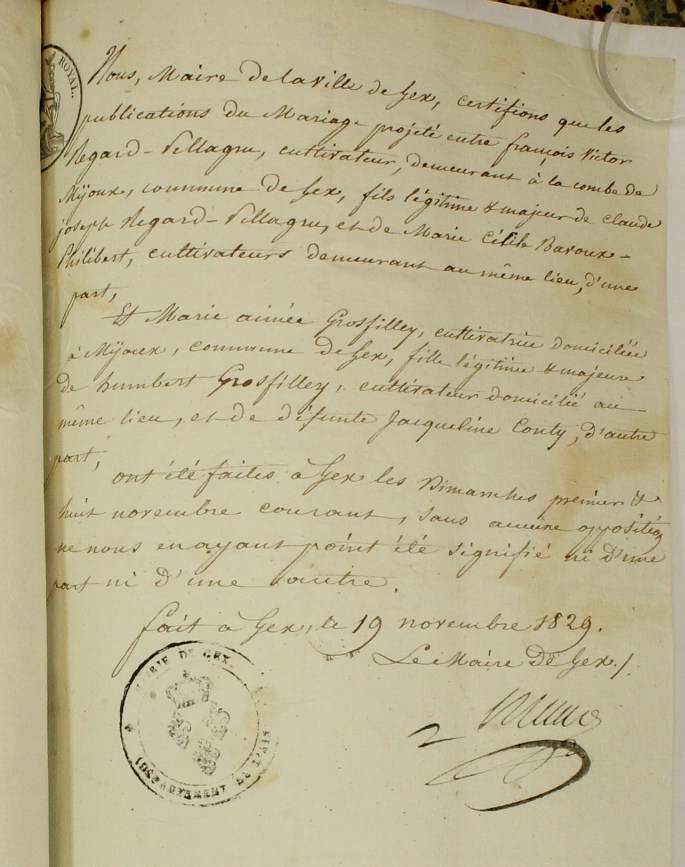 ROYAL.
Nous, Maire de la ville de Gex, certifions que les
publications du Mariage projeté entre françois Victor
Regard-Pellagru, cultivateur, demeurant à la combe de
Mijoux, commune de Gex, fils légitime & majeur de claude
joseph Regard-Pellagru, et de Marie Cécile Baroux-
Philibert, cultivateurs demeurant au même lieu, d'une
part,
Et Marie aimée Grosfilley, cultivatrice domiciliée
à Mijoux, commune de Gex, fille légitime & majeure
de humbert Grosfilley, cultivateur domicilié au
même lieu, et de défunte Jacqueline Conty, d'autre
part,
ont été faites à Gex les Dimanches premier &
huit novembre courant, sans aucune opposition
ne nous en ayant point été signifié ni d'une
part ni d'une autre.
fait à Gex, le 19 novembre 1829.
Le Maire de Gex /.
MAIRIE DE GEX.
(DEPARTEMENT DE L'AIN)